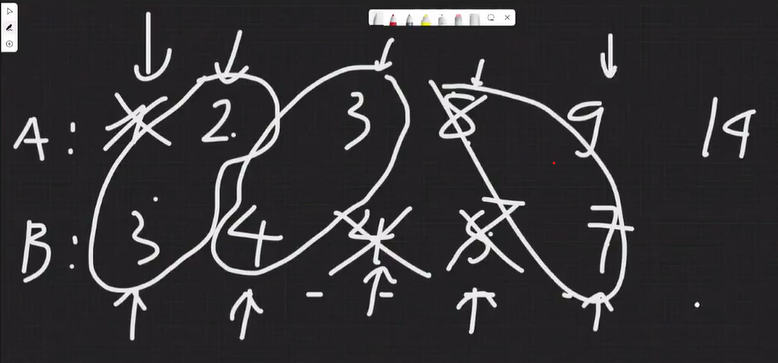 A: 1 2 3 8 9 14
B: 3 4 4 5 7